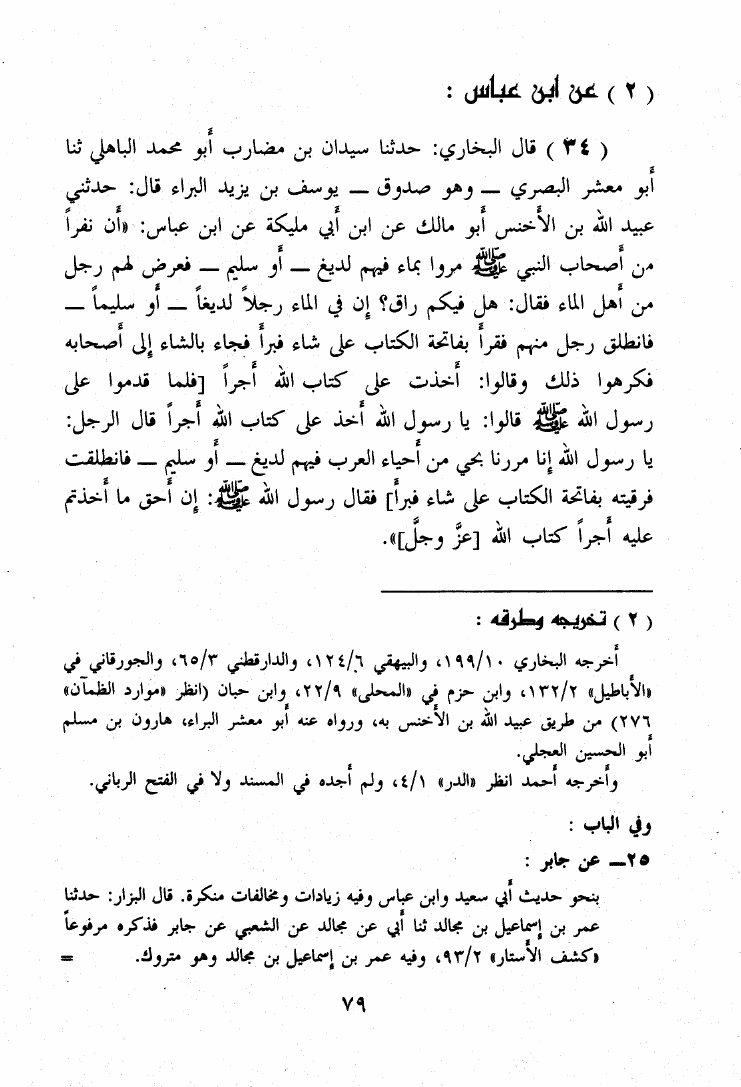 ( ٢ ) عن ابن عباس :
( ٣٤ ) قال البخاري: حدثنا سيدان بن مضارب أبو محمد الباهلي ثنا
أبو معشر البصري ــ وهو صدوق ــ يوسف بن يزيد البراء قال: حدثني
عبيد الله بن الأخنس أبو مالك عن ابن أبي مليكة عن ابن عباس: «أن نفراً
من أصحاب النبي ﷺ مروا بماء فيهم لديغ ــ أو سليم ــ فعرض لهم رجل
من أهل الماء فقال: هل فيكم راق؟ إن في الماء رجلاً لديغاً ــ أو سليماً ــ
فانطلق رجل منهم فقرأ بفاتحة الكتاب على شاء فبرأ فجاء بالشاء إلى أصحابه
فكرهوا ذلك وقالوا: أخذت على كتاب الله أجراً [فلما قدموا على
رسول الله ﷺ قالوا: يا رسول الله أخذ على كتاب الله أجراً قال الرجل:
يا رسول الله إنا مررنا بحي من أحياء العرب فيهم لديغ ــ أو سليم ــ فانطلقت
فرقيته بفاتحة الكتاب على شاء فبرأ] فقال رسول الله ﷺ: إن أحق ما أخذتم
عليه أجراً كتاب الله [عزَّ وجلَّ]».
( ٢ ) تخريجه وطرقه :
أخرجه البخاري ١٩٩/١٠، والبيهقي ١٢٤/٦، والدارقطني ٦٥/٣، والجورقاني في
«الأباطيل» ١٣٢/٢، وابن حزم في «المحلى» ٢٢/٩، وابن حبان (انظر «موارد الظمآن»
٢٧٦) من طريق عبيد الله بن الأخنس به، ورواه عنه أبو معشر البراء، هارون بن مسلم
أبو الحسين العجلي.
وأخرجه أحمد انظر «الدر» ٤/١، ولم أجده في المسند ولا في الفتح الرباني.
وفي الباب :
٢٥ــ عن جابر :
بنحو حديث أبي سعيد وابن عباس وفيه زيادات ومخالفات منكرة. قال البزار: حدثنا
عمر بن إسماعيل بن مجالد ثنا أبي عن مجالد عن الشعبي عن جابر فذكره مرفوعاً
«كشف الأستار» ٩٣/٢، وفيه عمر بن إسماعيل بن مجالد وهو متروك. =
٧٩